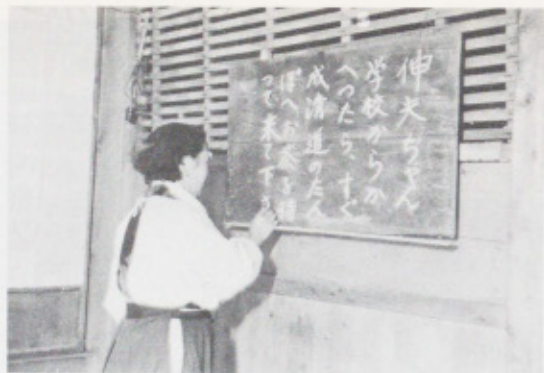 伸夫ちゃん
学校からか
へつたら、すぐ
成清道のたん
ぼへお茶を持
つて来て下さ